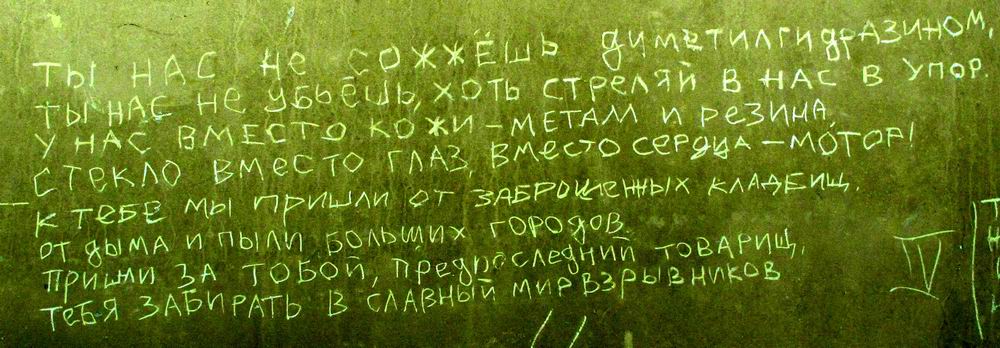 ТЫ НАС НЕ СОЖЖЁШЬ ДИМЕТИЛГИДРАЗИНОМ,
ТЫ НАС НЕ УБЬЁШЬ, ХОТЬ СТРЕЛЯЙ В НАС В УПОР.
У НАС ВМЕСТО КОЖИ – МЕТАЛЛ И РЕЗИНА,
СТЕКЛО ВМЕСТО ГЛАЗ, ВМЕСТО СЕРДЦА – МОТОР!
К ТЕБЕ МЫ ПРИШЛИ ОТ ЗАБРОШЕННЫХ КЛАДБИЩ,
ОТ ДЫМА И ПЫЛИ БОЛЬШИХ ГОРОДОВ.
ПРИШЛИ ЗА ТОБОЙ, ПРЕДПОСЛЕДНИЙ ТОВАРИЩ,
ТЕБЯ ЗАБИРАТЬ В СЛАВНЫЙ МИР ВЗРЫВНИКОВ
IV